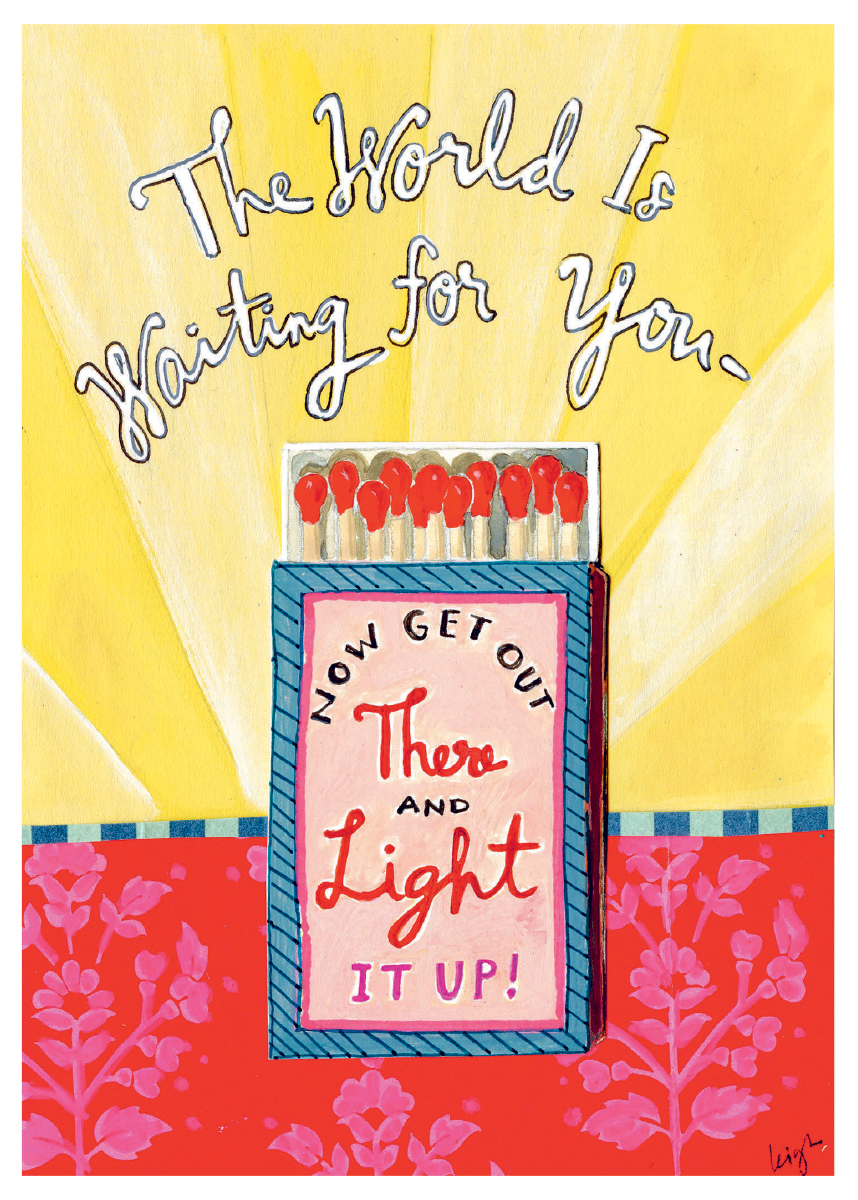 The World Is
Waiting for You-
NOW GET OUT
There
AND
Light
IT UP!
Leigh